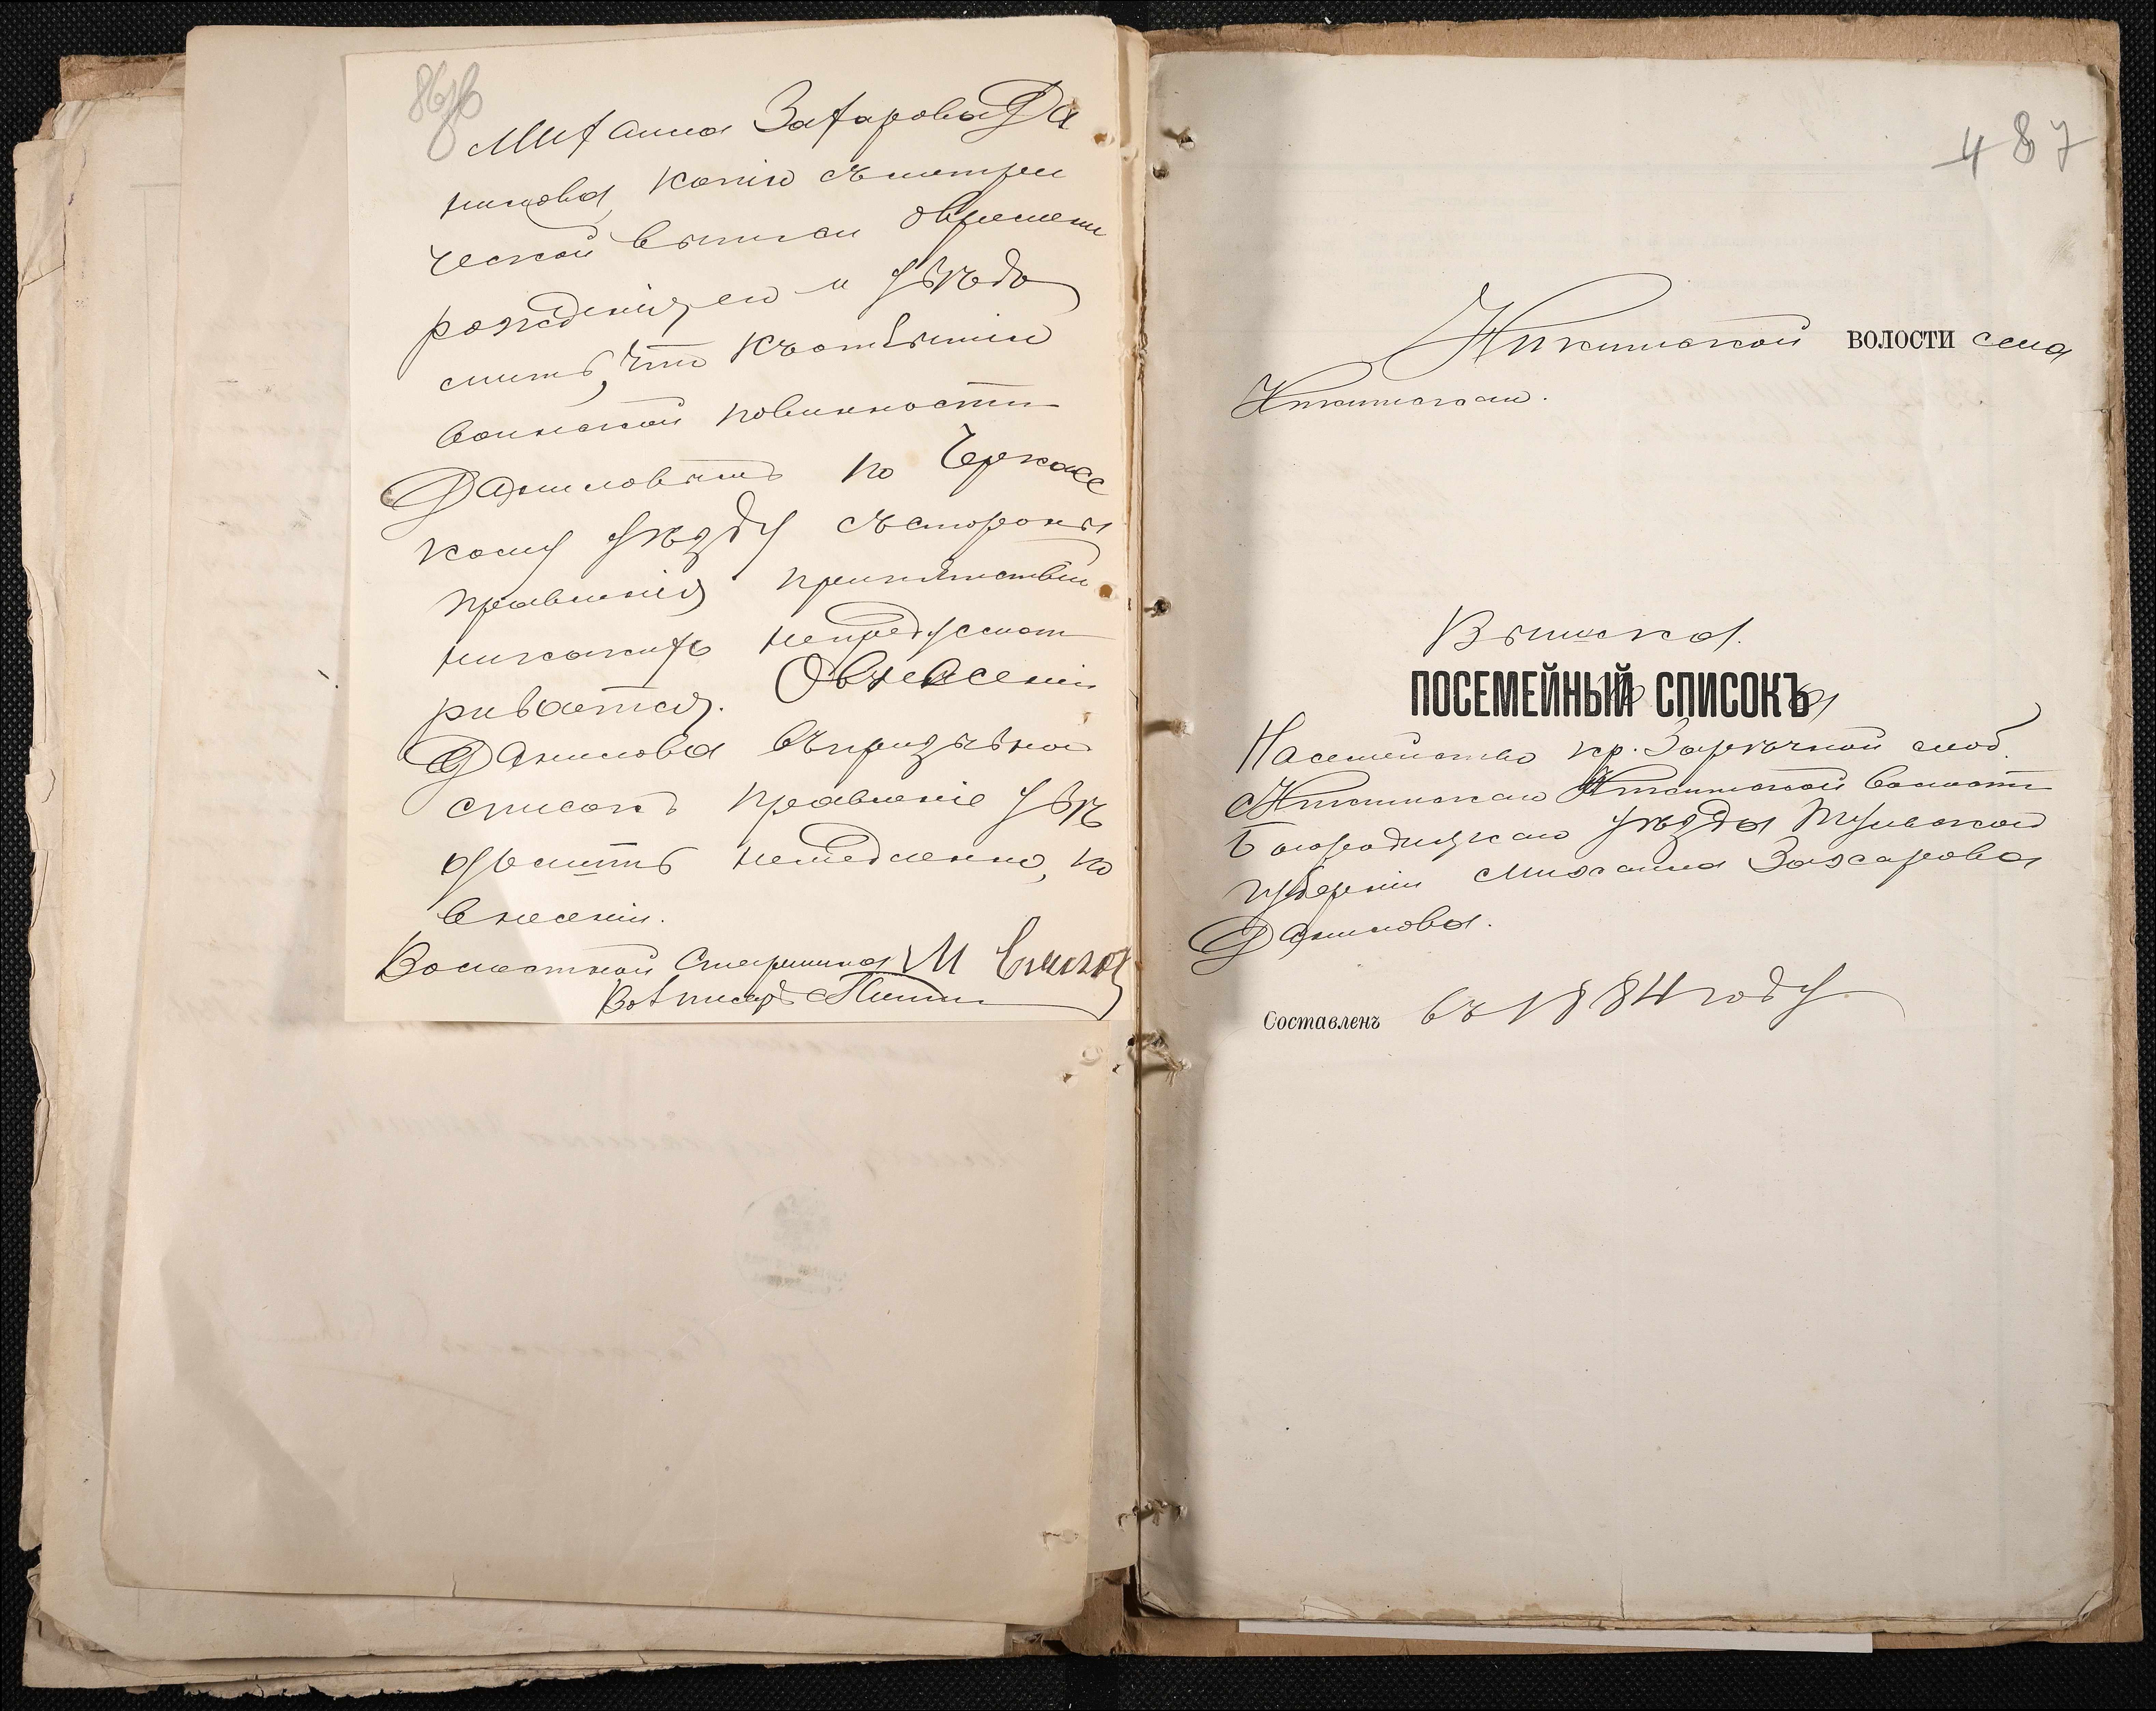 86об
Михаила Захарова Да
нилова, копію съ метри
ческой выписи о времени
рожденія его и увѣдо
мить, что къ отбытію
воинской повинности
Даниловымъ по Черкасс
кому уѣзду съ стороны
правленія препятствій
никакихъ непредусмат
ривается. О внесеніи
Данилова въ призывной
списокъ правленіе увѣ
домить немедленно, по
внесеніи.
Волостной Старшина М
Вол писарь
487
Никитской ВОЛОСТИ села
Никитскаго.
Выписка.
ПОСЕМЕЙНЫЙ СПИСОКЪ
На семейство кр. Зарѣчной слоб.
Никитскаго Никитской волости
Богородицкаго уѣзда Тульской
губерніи Михаила Захарова
Данилова.
Составленъ въ 1884 году